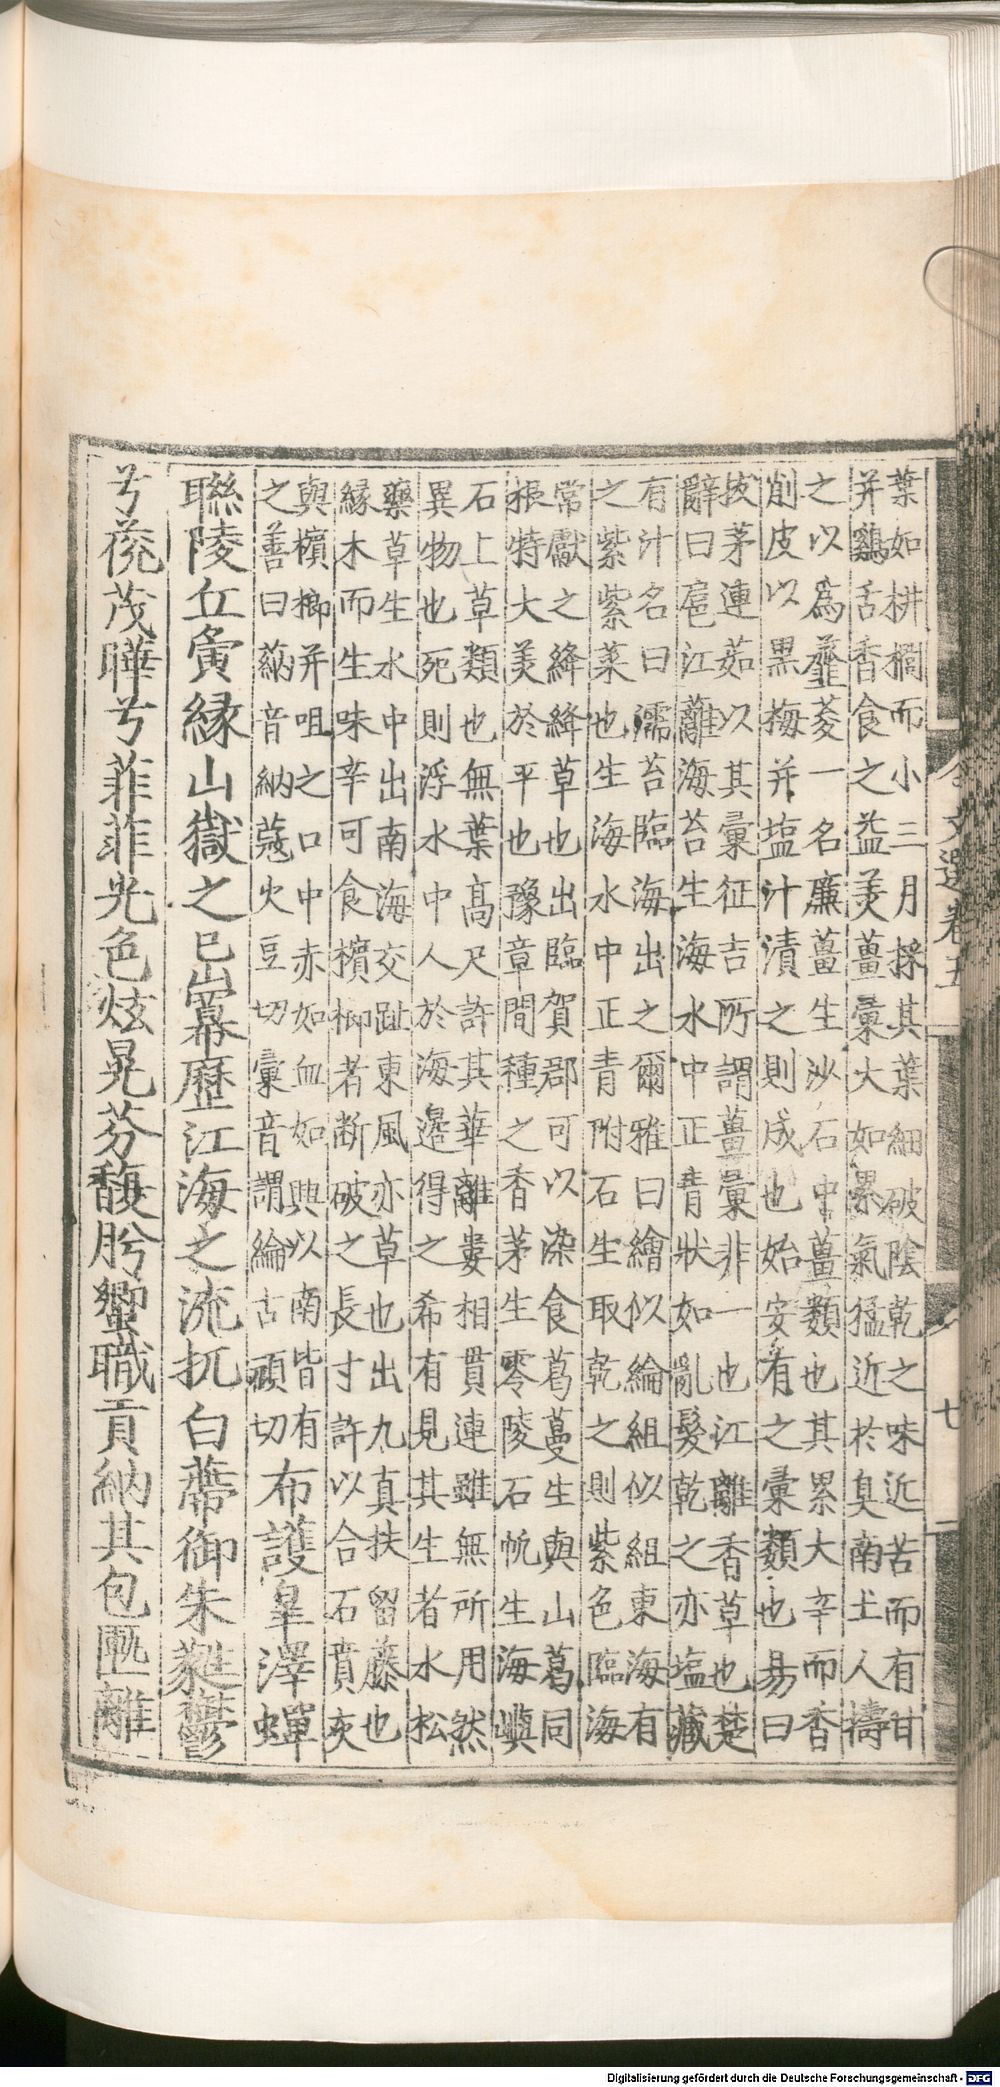 葉如栟櫚而小三月採其葉細破陰乾之味近苦而有甘
并雞舌香食之益美薑彙大如累氣猛近於臭南土人擣
之以爲虀菱一名廉薑生沙石中薑類也其累大辛而香
削皮以黒梅并塩汁漬之則成也始安有之彙類也易曰
拔茅連茹以其彙征吉所謂薑彙非一也江離香草也楚
辭曰扈江離海苔生海水中正青狀如亂髮乾之亦塩藏
有汁名曰濡苔臨海出之爾雅曰繪似綸組似組東海有
之紫紫菜也生海水中正青附石生取乾之則紫色臨海
常獻之絳絳草也出臨賀郡可以染食葛蔓生與山葛同
根特大美於平也豫章間種之香茅生零陵石帆生海嶼
石上草類也無葉高尺許其華離婁相貫連雖無所用然
異物也死則浮水中人於海邊得之希有見其生者水松
藥草生水中出南海交趾東風亦草也出九真扶留藤也
縁木而生味辛可食檳榔者断破之長寸許以合石賁灰
與檳榔并咀之口中赤如血如興以南皆有
之善曰蒳音納蔻火豆切彙音謂綸古頑切
布護皐澤蟬
聯陵丘夤縁山嶽之岊冪歷江海之流扤白蔕御朱蕤鬱
兮葰茂曄兮菲菲光色炫晃芬馥肸蠁職貢納其包匭離
文選卷五
七
Digitalisierung gefördert durch die Deutsche Forschungsgemeinschaft - DFG